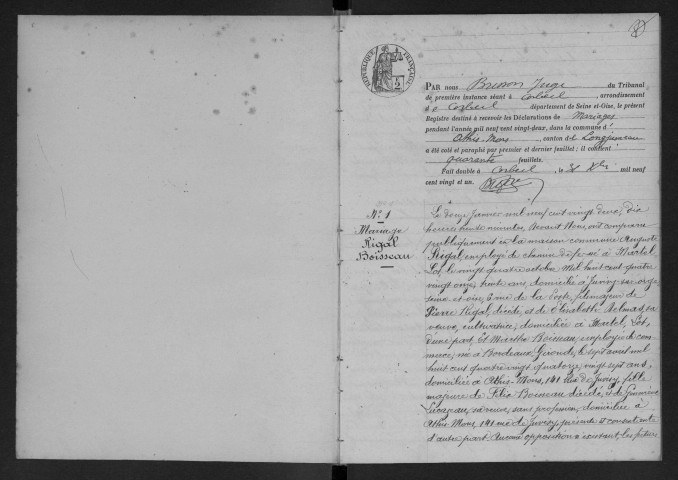 RÉPUBLIQUE FRANÇAISE
2
PAR nous Buisson Juge du Tribunal
de première instance séant à Corbeil, arrondissement
d e Corbeil département de Seine-et-Oise, le présent
Registre destiné à recevoir les Déclarations de Mariages
pendant l'année mil neuf cent vingt-deux, dans la commune d'
Athis-Mons canton de Longjumeau
a été coté et paraphé par premier et dernier feuillet; il contient
quarante feuillets.
Fait double à Corbeil, le 31 Xbre mil neuf
cent vingt et un.
N° 1
Mariage
Rigal
Boisseau
Le douze Janvier mil neuf cent vingt deux, dix
heures trente minutes, devant Nous, ont comparu
publiquement en la maison commune Auguste
Rigal, employé de chemin de fer, né à Martel
Lot, le vingt quatre octobre mil huit cent quatre
vingt onze, trente ans, domicilié à Juvisy-sur-orge,
Seine et oise, rue de la Poste, fils majeur de
Pierre Rigal, décédé, et de Elisabeth Delmas, sa
veuve, cultivatrice, domiciliée à Martel, Lot,
d'une part, Et Marthe Boisseau, employée de com-
merce, née à Bordeaux, Gironde, le sept avril mil
huit cent quatre vingt quatorze, vingt sept ans,
domiciliée à Athis-Mons, 141 rue de Juvisy, fille
majeure de Boisseau décédé, et de
sa veuve, sans profession, domiciliée à
Athis-Mons, 141 rue de Juvisy, présente et consentante
d'autre part. Aucune opposition n'existant, les futurs